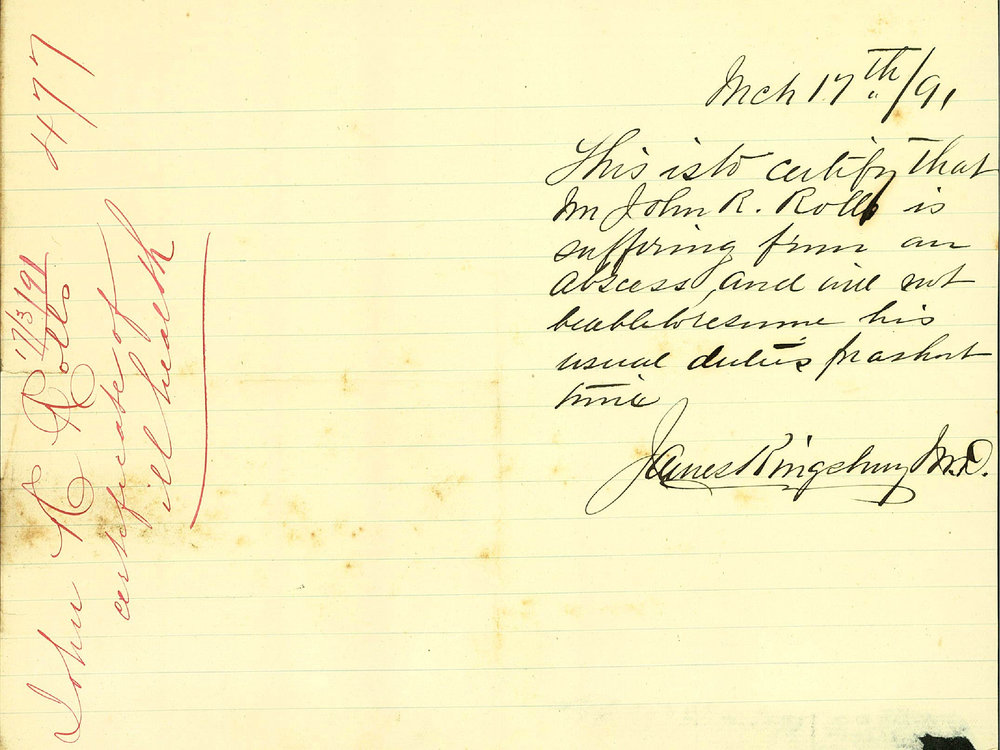 Mch 17th/91
This is to certify that
Mr John R. Rolls is
suffering from an
abscess, and will not
be able to resume his
usual duties for a short
time
James Kingsbury M.D.
John R Rolls
17/3/91
certificate of
ill health
477